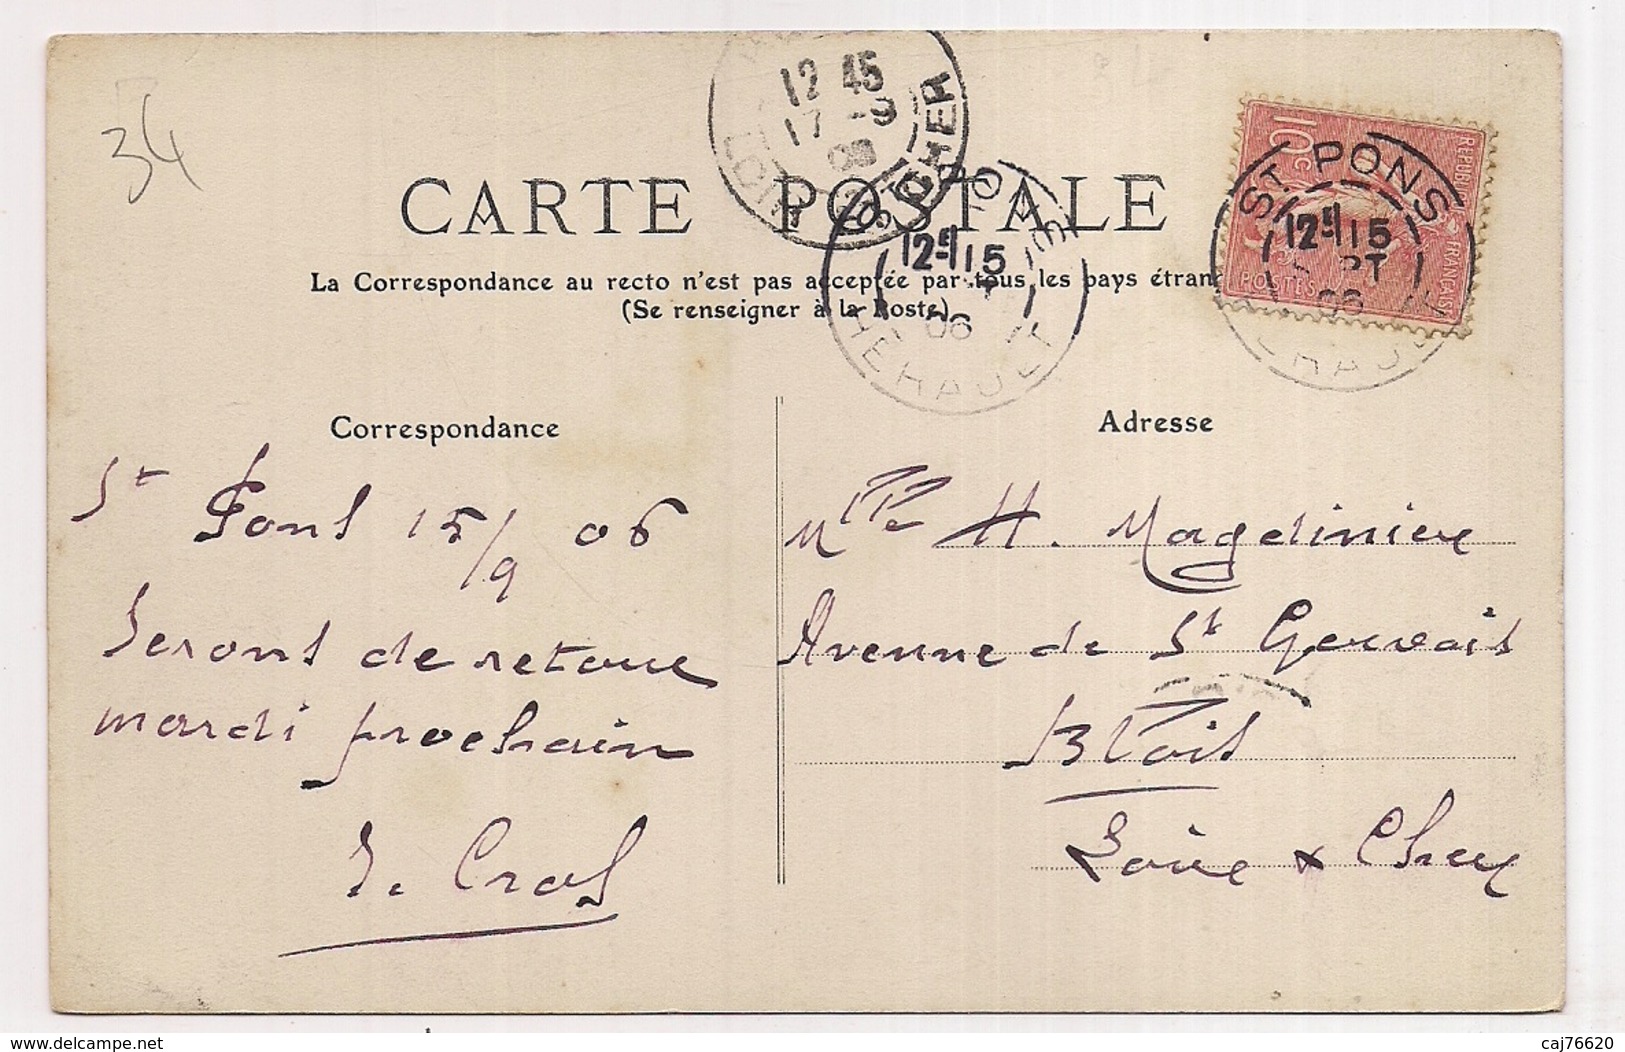 34
12 45
17 - 9
CHER
CARTE POSTALE
La Correspondance au recto n'est pas acceptée par tous les pays étran
(Se renseigner à la Poste)
12E 15
06
HERAULT
10c
POSTES
ST PONS
12E 15
06
HERAULT
Correspondance
Adresse
St Pons 15/9 06
Serons de retour
mardi prochain
Mlle H. Magdinier
Avenue de St Gervais
Blois
Loire & Cher
delcampe.net
caj76620